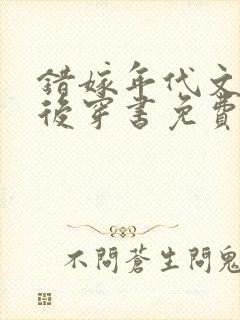 錯嫁年代文
後穿書免費
不問蒼生問鬼